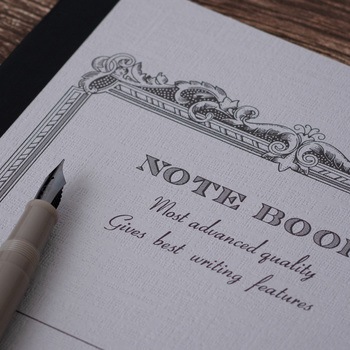 NOTE BOOK
Most advanced quality
Gives best writing features